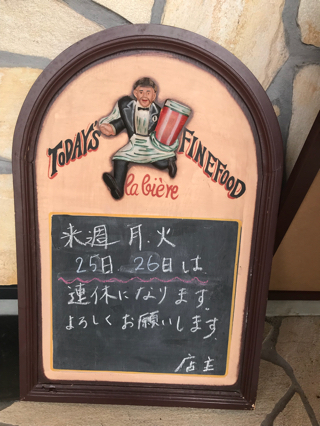 TODAY'S FINEFOOD
la bière
来週 月.火
25日 26日は
連休になります。
よろしくお願いします。
店主